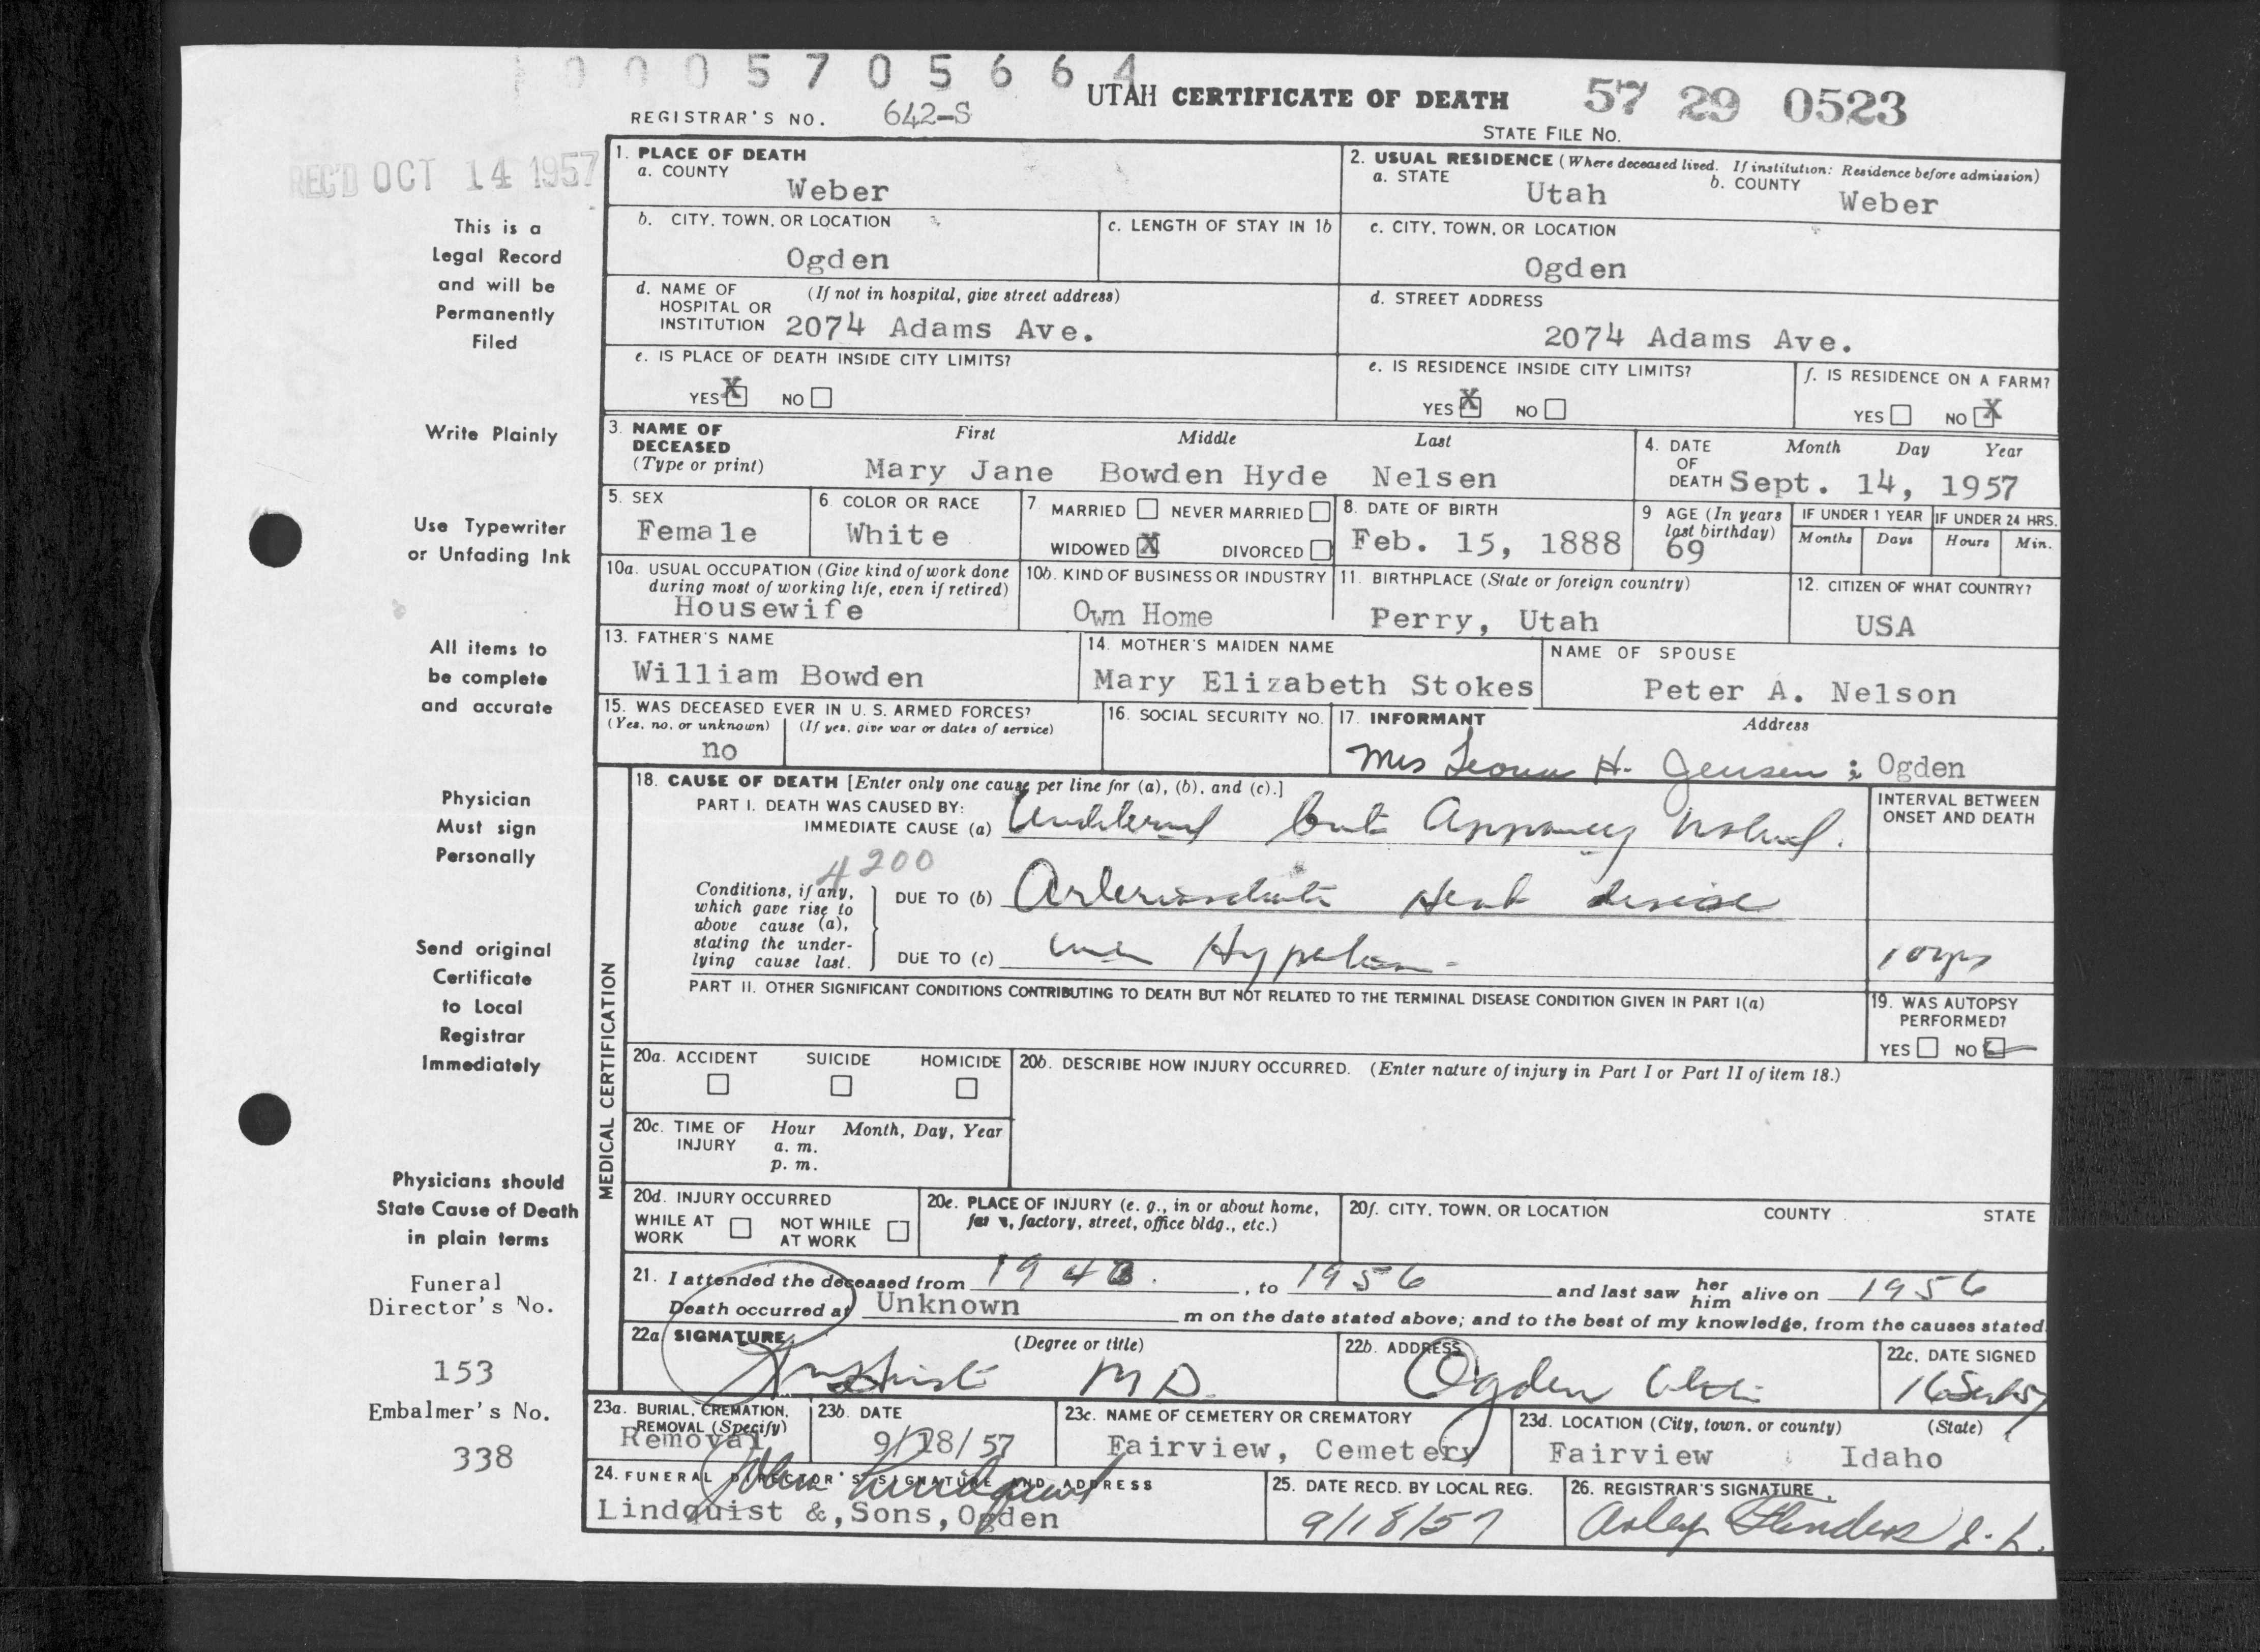 0 0 0 5 7 0 5 6 6 4
UTAH CERTIFICATE OF DEATH
57 29 0523
REGISTRAR'S NO. 642-S
STATE FILE NO.
REC'D OCT 14 1957
This is a
Legal Record
and will be
Permanently
Filed
Write Plainly
Use Typewriter
or Unfading Ink
All items to
be complete
and accurate
Physician
Must sign
Personally
Send original
Certificate
to Local
Registrar
Immediately
Physicians should
State Cause of Death
in plain terms
Funeral
Director's No.
153
Embalmer's No.
338
1. PLACE OF DEATH
a. COUNTY
Weber
2. USUAL RESIDENCE (Where deceased lived. If institution: Residence before admission)
a. STATE Utah b. COUNTY Weber
b. CITY, TOWN, OR LOCATION
Ogden
c. LENGTH OF STAY IN 1b
c. CITY, TOWN, OR LOCATION
Ogden
d. NAME OF (If not in hospital, give street address)
HOSPITAL OR
INSTITUTION 2074 Adams Ave.
d. STREET ADDRESS
2074 Adams Ave.
e. IS PLACE OF DEATH INSIDE CITY LIMITS?
YES X NO
e. IS RESIDENCE INSIDE CITY LIMITS?
YES X NO
f. IS RESIDENCE ON A FARM?
YES NO X
3. NAME OF First Middle Last
DECEASED
(Type or print) Mary Jane Bowden Hyde Nelsen
4. DATE Month Day Year
OF
DEATH Sept. 14, 1957
5. SEX
Female
6. COLOR OR RACE
White
7 MARRIED NEVER MARRIED
WIDOWED X DIVORCED
8. DATE OF BIRTH
Feb. 15, 1888
9 AGE (In years
last birthday)
69
IF UNDER 1 YEAR
Months Days
IF UNDER 24 HRS.
Hours Min.
10a. USUAL OCCUPATION (Give kind of work done
during most of working life, even if retired)
Housewife
10b. KIND OF BUSINESS OR INDUSTRY
Own Home
11. BIRTHPLACE (State or foreign country)
Perry, Utah
12. CITIZEN OF WHAT COUNTRY?
USA
13. FATHER'S NAME
William Bowden
14. MOTHER'S MAIDEN NAME
Mary Elizabeth Stokes
NAME OF SPOUSE
Peter A. Nelson
15. WAS DECEASED EVER IN U. S. ARMED FORCES?
(Yes, no, or unknown) (If yes, give war or dates of service)
no
16. SOCIAL SECURITY NO.
17. INFORMANT Address
Mrs H. Jensen ; Ogden
MEDICAL CERTIFICATION
18. CAUSE OF DEATH [Enter only one cause per line for (a), (b), and (c).]
PART I. DEATH WAS CAUSED BY:
IMMEDIATE CAUSE (a) but Natural.
INTERVAL BETWEEN
ONSET AND DEATH
4200
Conditions, if any,
which gave rise to
above cause (a),
stating the under-
lying cause last.
DUE TO (b) Heart disease
DUE TO (c) Hypertension
10 yrs
PART II. OTHER SIGNIFICANT CONDITIONS CONTRIBUTING TO DEATH BUT NOT RELATED TO THE TERMINAL DISEASE CONDITION GIVEN IN PART I(a)
19. WAS AUTOPSY
PERFORMED?
YES NO
20a. ACCIDENT SUICIDE HOMICIDE
20b. DESCRIBE HOW INJURY OCCURRED. (Enter nature of injury in Part I or Part II of item 18.)
20c. TIME OF Hour Month, Day, Year
INJURY a. m.
p. m.
20d. INJURY OCCURRED
WHILE AT NOT WHILE
WORK AT WORK
20e. PLACE OF INJURY (e. g., in or about home,
factory, street, office bldg., etc.)
20f. CITY, TOWN, OR LOCATION COUNTY STATE
21. I attended the deceased from , to 1956 and last saw her him alive on 1956
Death occurred at Unknown m on the date stated above; and to the best of my knowledge, from the causes stated.
22a. SIGNATURE (Degree or title)
MD.
22b. ADDRESS
Ogden Utah
22c. DATE SIGNED
16 Sept 57
23a. BURIAL, CREMATION,
REMOVAL (Specify)
Removal
23b. DATE
9/18/57
23c. NAME OF CEMETERY OR CREMATORY
Fairview, Cemetery
23d. LOCATION (City, town, or county) (State)
Fairview Idaho
24. FUNERAL DIRECTOR'S SIGNATURE AND ADDRESS
John Lindquist
Lindquist &,Sons,Ogden
25. DATE RECD. BY LOCAL REG.
9/18/57
26. REGISTRAR'S SIGNATURE
Flinders